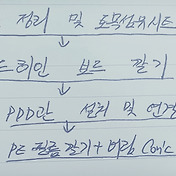 정리 및 토목섬유시트
드레인 보드 깔기
PDD관 설치 및 연결
PE 필름 깔기 + 버림 Con'c